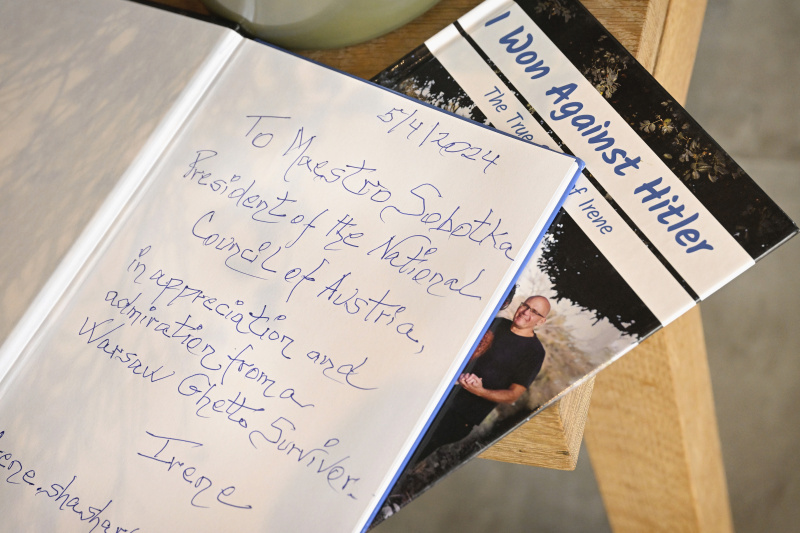 5/4/2024
To Maestro Sobotka
President of the National
Council of Austria,
in appreciation and
admiration from a
Warsaw Ghetto Surviver.
Irene
I Won Against Hitler
The True
of Irene